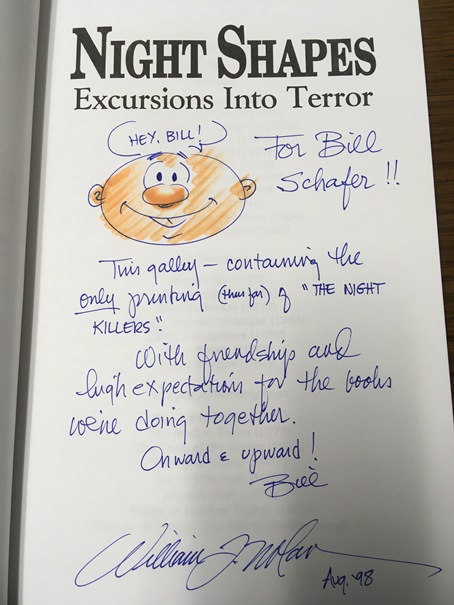 NIGHT SHAPES
Excursions Into Terror
HEY, BILL!
For Bill
Schafer !!
This galley — containing the
only printing (thus far) of "THE NIGHT
KILLERS".
With friendship and
high expectations for the books
we're doing together.
Onward & upward!
Bill
William F. Nolan
Aug. '98